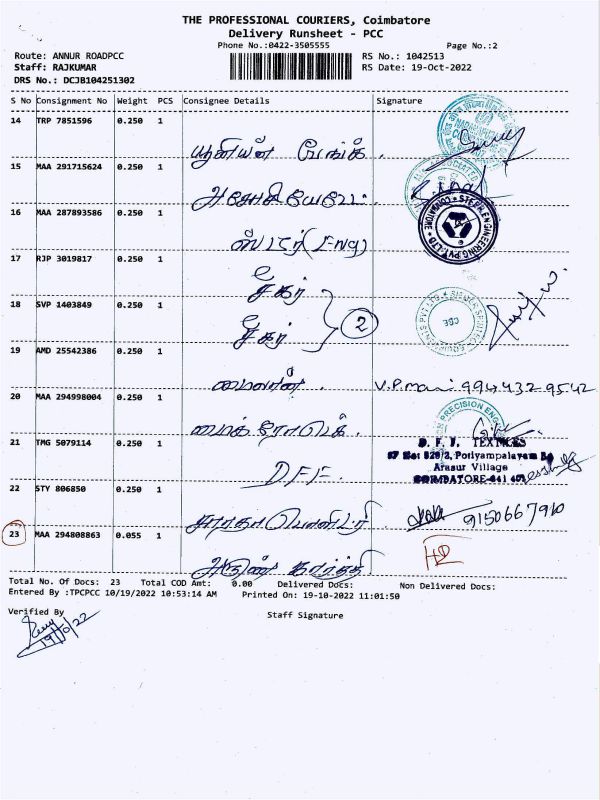 THE PROFESSIONAL COURIERS, Coimbatore
Delivery Runsheet - PCC
Phone No.:0422-3505555
Page No.:2
Route: ANNUR ROADPCC
RS No.: 1042513
Staff: RAJKUMAR
RS Date: 19-Oct-2022
DRS No.: DCJB104251302
S No Consignment No Weight PCS Consignee Details Signature
14 TRP 7851596 0.250 1
யூனியன் பேங்க்
15 MAA 291715624 0.250 1
16 MAA 287893586 0.250 1
ஸ்டார் (Eng)
17 RJP 3019817 0.250 1
சேகர்
18 SVP 1403849 0.250 1
சேகர்
2
19 AMD 25542386 0.250 1
V.P.mani 994432 9542
20 MAA 294998004 0.250 1
21 TMG 5079114 0.250 1
DFF.
D. F. F. TEXTILES
Poriyampalayam
Arasur Village
COIMBATORE-641 407
22 STY 806850 0.250 1
சாரதா
9150667910
23 MAA 294808863 0.055 1
அருண் கார்த்தி
Total No. Of Docs: 23 Total COD Amt: 0.00 Delivered Docs: Non Delivered Docs:
Entered By :TPCPCC 10/19/2022 10:53:14 AM Printed On: 19-10-2022 11:01:50
Verified By
Staff Signature
19/10/22